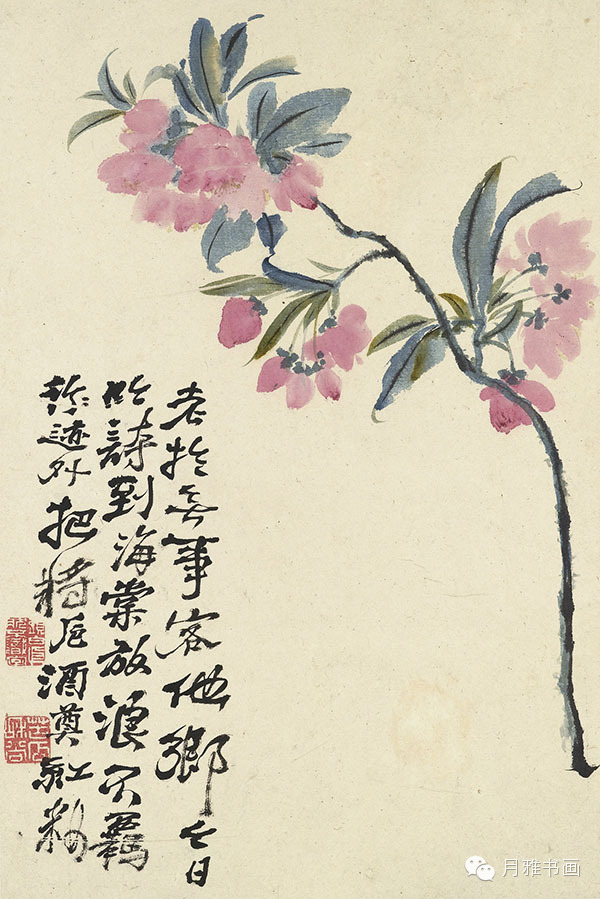 老於無事客他鄉今日
吟詩到海棠放浪不羈
形迹外把將卮酒奠紅粧
月雅书画